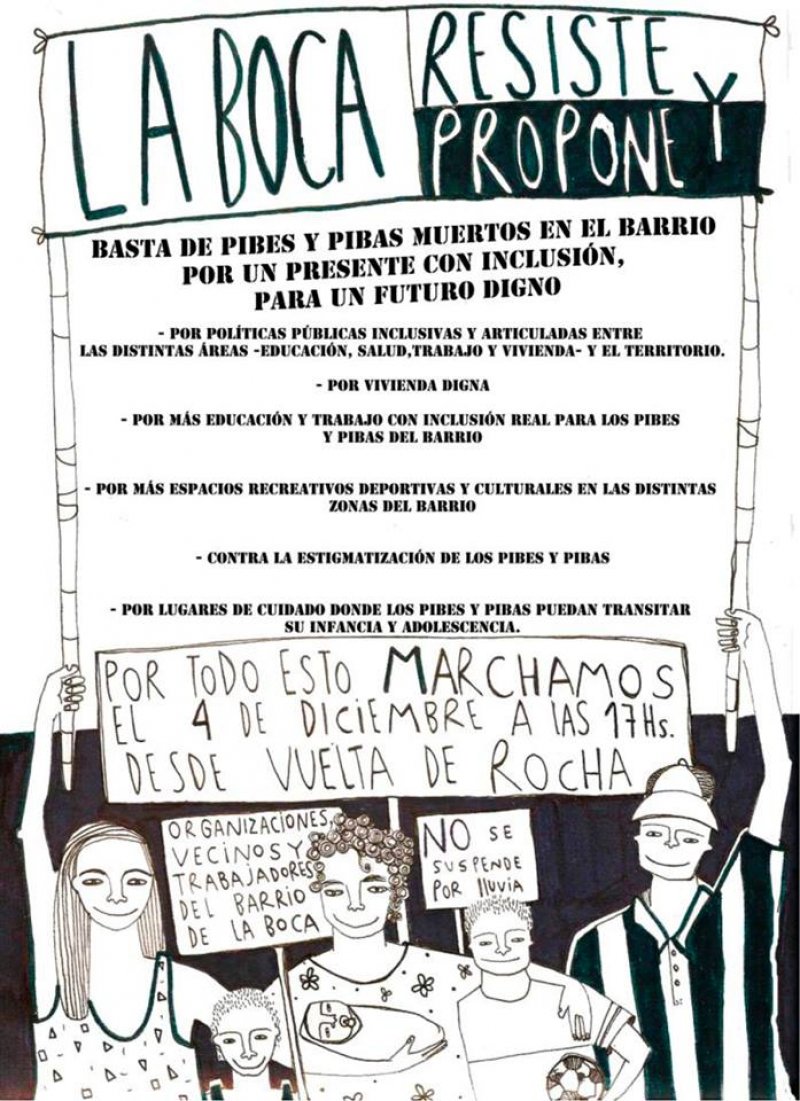 LA BOCA RESISTE Y
PROPONE
BASTA DE PIBES Y PIBAS MUERTOS EN EL BARRIO
POR UN PRESENTE CON INCLUSIÓN,
PARA UN FUTURO DIGNO
- POR POLÍTICAS PÚBLICAS INCLUSIVAS Y ARTICULADAS ENTRE
LAS DISTINTAS ÁREAS -EDUCACIÓN, SALUD,TRABAJO Y VIVIENDA- Y EL TERRITORIO.
- POR VIVIENDA DIGNA
- POR MÁS EDUCACIÓN Y TRABAJO CON INCLUSIÓN REAL PARA LOS PIBES
Y PIBAS DEL BARRIO
- POR MÁS ESPACIOS RECREATIVOS DEPORTIVAS Y CULTURALES EN LAS DISTINTAS
ZONAS DEL BARRIO
- CONTRA LA ESTIGMATIZACIÓN DE LOS PIBES Y PIBAS
- POR LUGARES DE CUIDADO DONDE LOS PIBES Y PIBAS PUEDAN TRANSITAR
SU INFANCIA Y ADOLESCENCIA.
POR TODO ESTO MARCHAMOS
EL 4 DE DICIEMBRE A LAS 17HS.
DESDE VUELTA DE ROCHA
ORGANIZACIONES,
VECINOS Y
TRABAJADORES
DEL BARRIO
DE LA BOCA
NO SE
SUSPENDE
POR lluvia